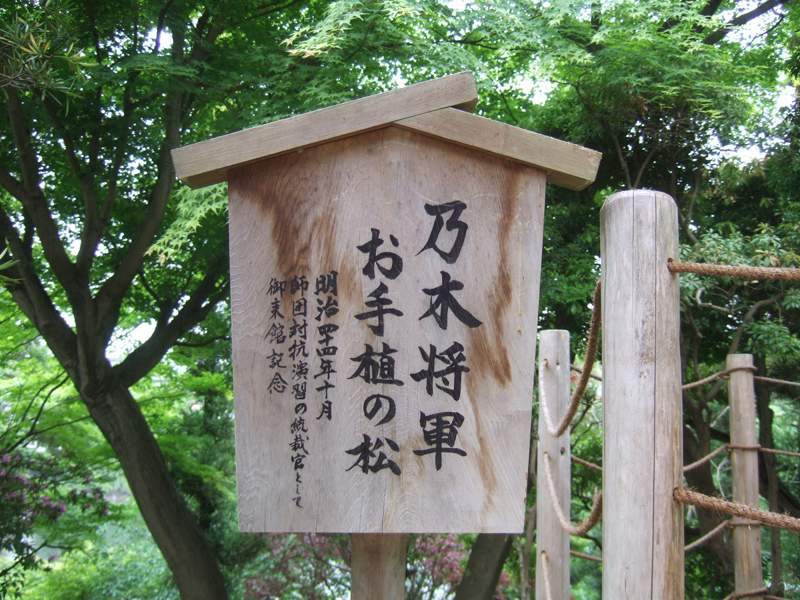 乃木将軍
お手植の松
明治四十四年十月
師団対抗演習の統裁官として
御来館記念